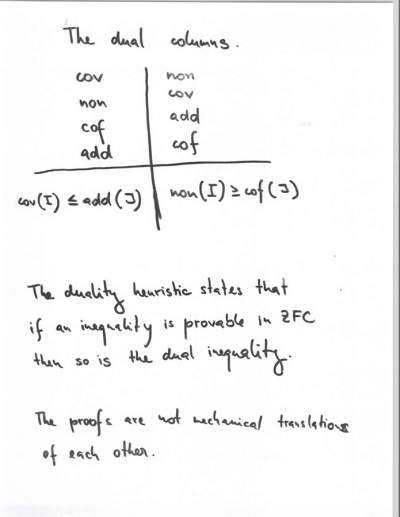 The dual columns.
cov | non
non | cov
cof | add
add | cof
cov(I) ≤ add(J) | non(I) ≥ cof(J)
The duality heuristic states that
if an inequality is provable in ZFC
then so is the dual inequality.
The proofs are not mechanical translations
of each other.